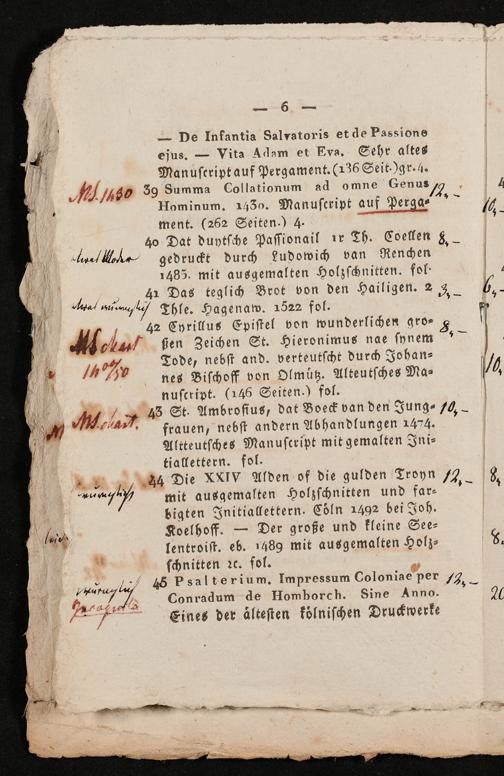 — 6 —
— De Infantia Salvatoris et de Passione
ejus. — Vita Adam et Eva. Sehr altes
Manuscript auf Pergament. (136 Seit.) gr. 4.
MS. 1430 39 Summa Collationum ad omne Genus 12,-
Hominum. 1430. Manuscript auf Perga=
ment. (262 Seiten.) 4.
40 Dat duytsche Passionail 1r Th. Coellen 8,-
gedruckt durch Ludowich van Renchen
1485. mit ausgemalten Holzschnitten. fol.
41 Das teglich Brot von den Hailigen. 2 3,-
Thle. Hagenaw. 1522 fol.
42 Cyrillus Epistel von wunderlichen gro= 8,-
MS chart
ßen Zeichen St. Hieronimus nae synem
Tode, nebst and. verteutscht durch Johan=
nes Bischoff von Olmütz. Alteutsches Ma=
nuscript. (146 Seiten.) fol.
MS chart. 43 St. Ambrosius, dat Boeck van den Jung= 10,-
frauen, nebst andern Abhandlungen 1474.
Altteutsches Manuscript mit gemalten Ini=
tiallettern. fol.
44 Die XXIV Alden of die gulden Troyn 12,-
mit ausgemalten Holzschnitten und far=
bigten Initiallettern. Cöln 1492 bei Joh.
Koelhoff. — Der große und kleine See=
lentroist. eb. 1489 mit ausgemalten Holz=
schnitten ꝛc. fol.
45 Psalterium. Impressum Coloniae per 12,-
Conradum de Homborch. Sine Anno.
Eines der ältesten kölnischen Druckwerke